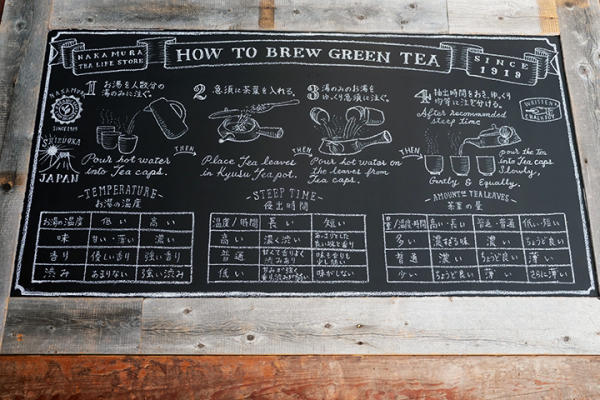 NAKAMURA
TEA LIFE STORE
HOW TO BREW GREEN TEA
SINCE
1919
NAKAMURA
SINCE 1919
SHIZUOKA
JAPAN
1 お湯を人数分の
湯のみに注ぐ。
Pour hot water
into Tea caps.
THEN
2 急須に茶葉を入れる。
Place Tea leaves
in Kyusu Tea pot.
THEN
3 湯のみのお湯を
ゆっくり急須に注ぐ。
Pour hot water on
the leaves from
Tea caps.
THEN
4 抽出時間をおき、ゆっくり
均等に注ぎ分ける。
After recommended
steep time
pour the Tea
into Tea caps
Slowly,
Gently & Equally.
WRITTEN
CHALKBOY
TEMPERATURE
お湯の温度
お湯の温度 低い 高い
味 甘い・旨い 濃い
香り 優しい香り 強い香り
渋み あまりない 強い渋み
STEEP TIME
浸出時間
温度/時間 長い 短い
高い 濃く渋い あっさりとした
普通 甘くて香りよく
渋みあり
低い 味がしない
AMOUNT of TEA LEAVES
茶葉の量
量/温度・時間 高い・長い 普通・普通 低い・短い
多い 濃すぎる味 濃い ちょうど良い
普通 濃い ちょうど良い 薄い
少い ちょうど良い 薄い さらに薄い